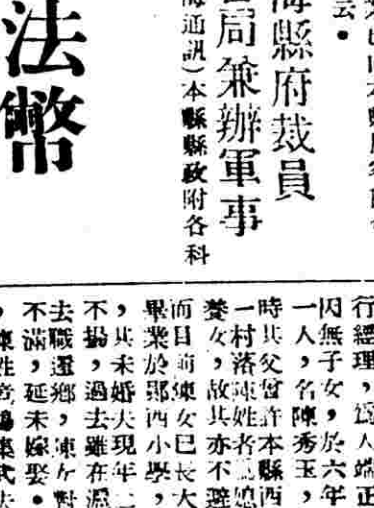 海縣府裁員
局兼辦軍事
通訊）本縣縣政府各科
法幣
行經理，爲人端正
因無子女，於六年
一人，名陳秀玉，
時其父曾許本縣西
一村落陳姓者 媳
養女，故其亦不避
而目前陳女已長大
畢業於鄮西小學，
，其未婚夫現年二
不揚，過去雖在滬
去職還鄉，陳女對
不滿，延未嫁娶。